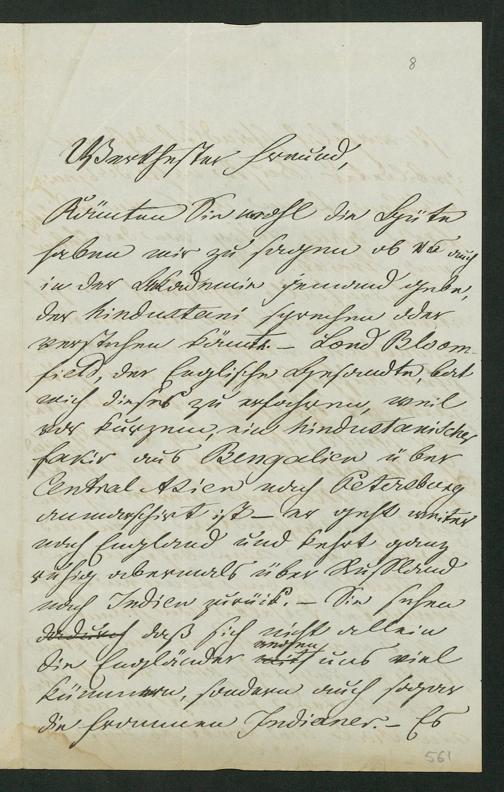 8
Werthester Freund,
Könnten Sie wohl die Güte
haben mir zu sagen ob es auch
in der Akademie jemand gebe,
der hindustani sprechen oder
verstehen könnte. – Lord Bloom-
field, der Englische Gesandte, bat
mich dieses zu erfahren, weil
vor kurzem, ein hindustanischer
fakir aus Bengalien über
Central Asien nach Petersburg
anmarschirt ist – er geht weiter
nach England und kehrt ganz
ruhig abermals über Russland
nach Indien zurück. – Sie sehen
dadurch daß sich nicht allein
die Engländer um uns viel
kümmern, sondern auch sogar
die frommen Indianer. – Es
561